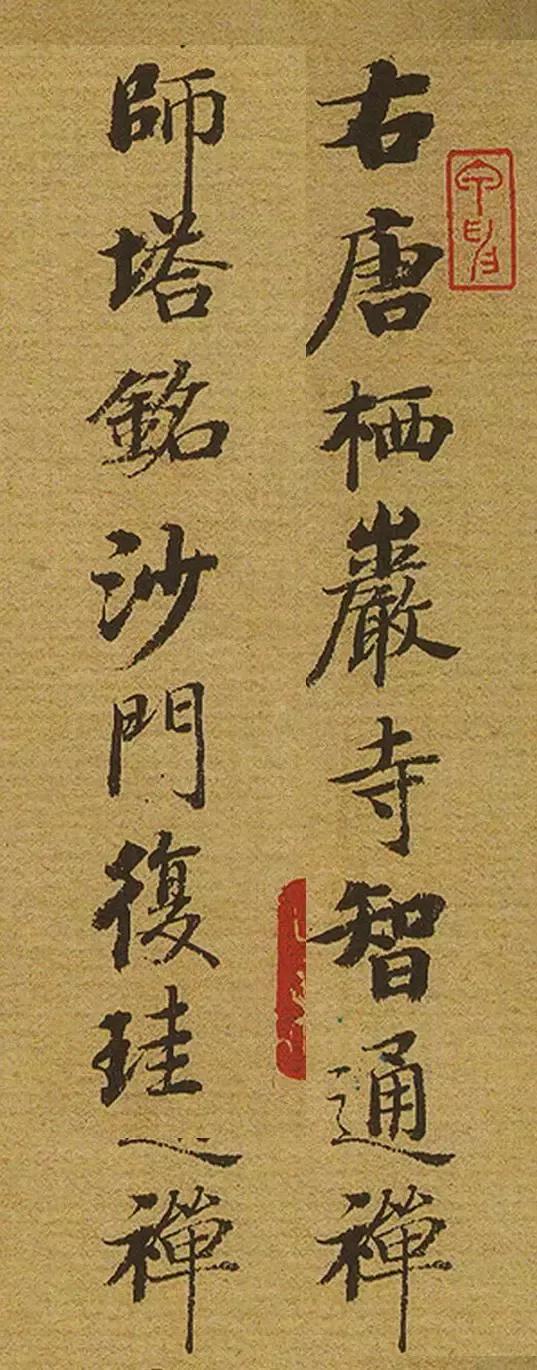 右唐栖巖寺智通禪
師塔銘沙門復珪禪